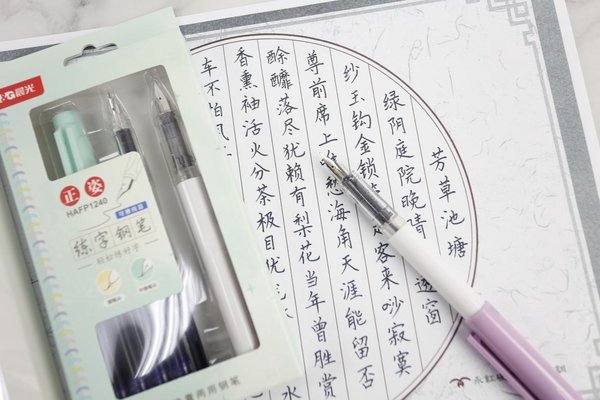 晨光
正姿
HAFP1240
练字钢笔
轻松练好字
两用钢笔
芳草池塘
绿阴庭院晚晴 透窗
纱玉钩金锁 客来吵寂寞
尊前席上 愁海角天涯能留否
酴醾落尽犹赖有梨花当年曾胜赏
香熏袖活火分茶极目
水
车不怕风
永红